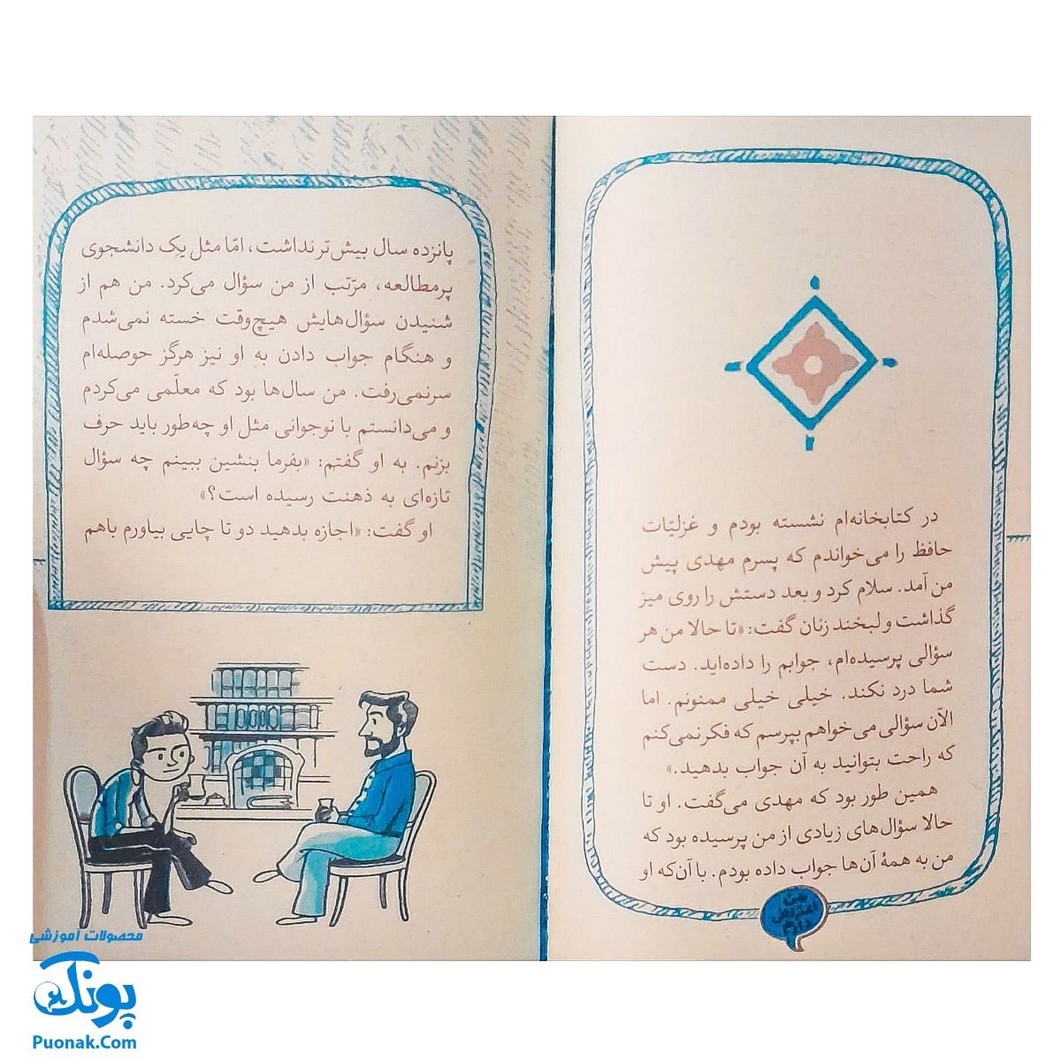 در کتابخانه‌ام نشسته بودم و غزلیّات
حافظ را می‌خواندم که پسرم مهدی پیش
من آمد. سلام کرد و بعد دستش را روی میز
گذاشت و لبخند زنان گفت: «تا حالا من هر
سؤالی پرسیده‌ام، جوابم را داده‌اید. دست
شما درد نکند. خیلی خیلی ممنونم. اما
الآن سؤالی می‌خواهم بپرسم که فکر نمی‌کنم
که راحت بتوانید به آن جواب بدهید.»
همین طور بود که مهدی می‌گفت. او تا
حالا سؤال‌های زیادی از من پرسیده بود که
من به همهٔ آن‌ها جواب داده بودم. با آن‌که او
من
اعتراض
دارم
پانزده سال بیش‌تر نداشت، امّا مثل یک دانشجوی
پرمطالعه، مرّتب از من سؤال می‌کرد. من هم از
شنیدن سؤال‌هایش هیچ‌وقت خسته نمی‌شدم
و هنگام جواب دادن به او نیز هرگز حوصله‌ام
سرنمی‌رفت. من سال‌ها بود که معلّمی می‌کردم
و می‌دانستم با نوجوانی مثل او چه‌طور باید حرف
بزنم. به او گفتم: «بفرما بنشین ببینم چه سؤال
تازه‌ای به ذهنت رسیده است؟»
او گفت: «اجازه بدهید دو تا چایی بیاورم باهم
محصولات آموزشی
پونک
Puonak.Com